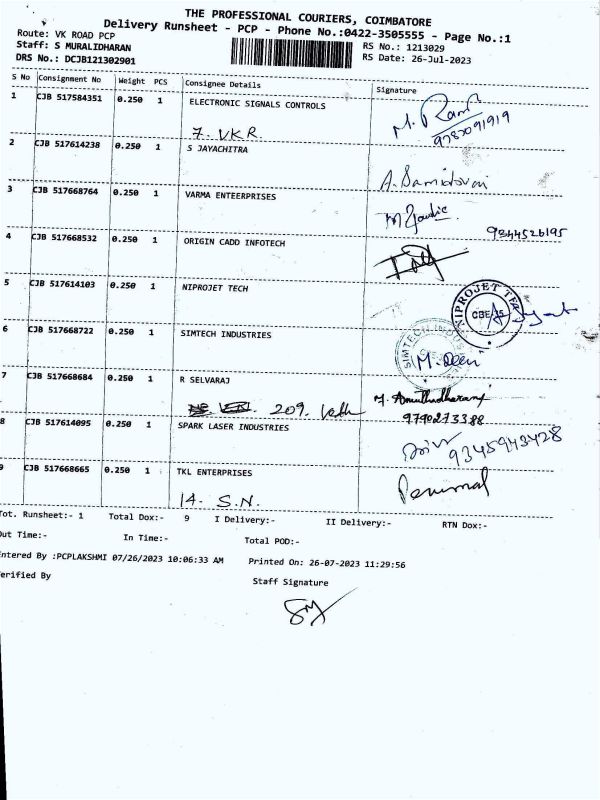 THE PROFESSIONAL COURIERS, COIMBATORE
Delivery Runsheet - PCP - Phone No.:0422-3505555 - Page No.:1
Route: VK ROAD PCP
Staff: S MURALIDHARAN
RS No.: 1213029
DRS No.: DCJB121302901
RS Date: 26-Jul-2023
S No Consignment No Weight PCS Consignee Details Signature
1 CJB 517584351 0.250 1 ELECTRONIC SIGNALS CONTROLS
7. VKR
M. Ram
9787091919
2 CJB 517614238 0.250 1 S JAYACHITRA
3 CJB 517668764 0.250 1 VARMA ENTEERPRISES
9344526195
4 CJB 517668532 0.250 1 ORIGIN CADD INFOTECH
5 CJB 517614103 0.250 1 NIPROJET TECH
NIPROJET TE
CBE
6 CJB 517668722 0.250 1 SIMTECH INDUSTRIES
SIMTECH IND
M. Deen
7 CJB 517668684 0.250 1 R SELVARAJ
209.
9790273388
8 CJB 517614095 0.250 1 SPARK LASER INDUSTRIES
9345943428
9 CJB 517668665 0.250 1 TKL ENTERPRISES
14. S.N.
Perumal
Tot. Runsheet:- 1 Total Dox:- 9 I Delivery:- II Delivery:- RTN Dox:-
Out Time:- In Time:- Total POD:-
Entered By :PCPLAKSHMI 07/26/2023 10:06:33 AM Printed On: 26-07-2023 11:29:56
erified By Staff Signature